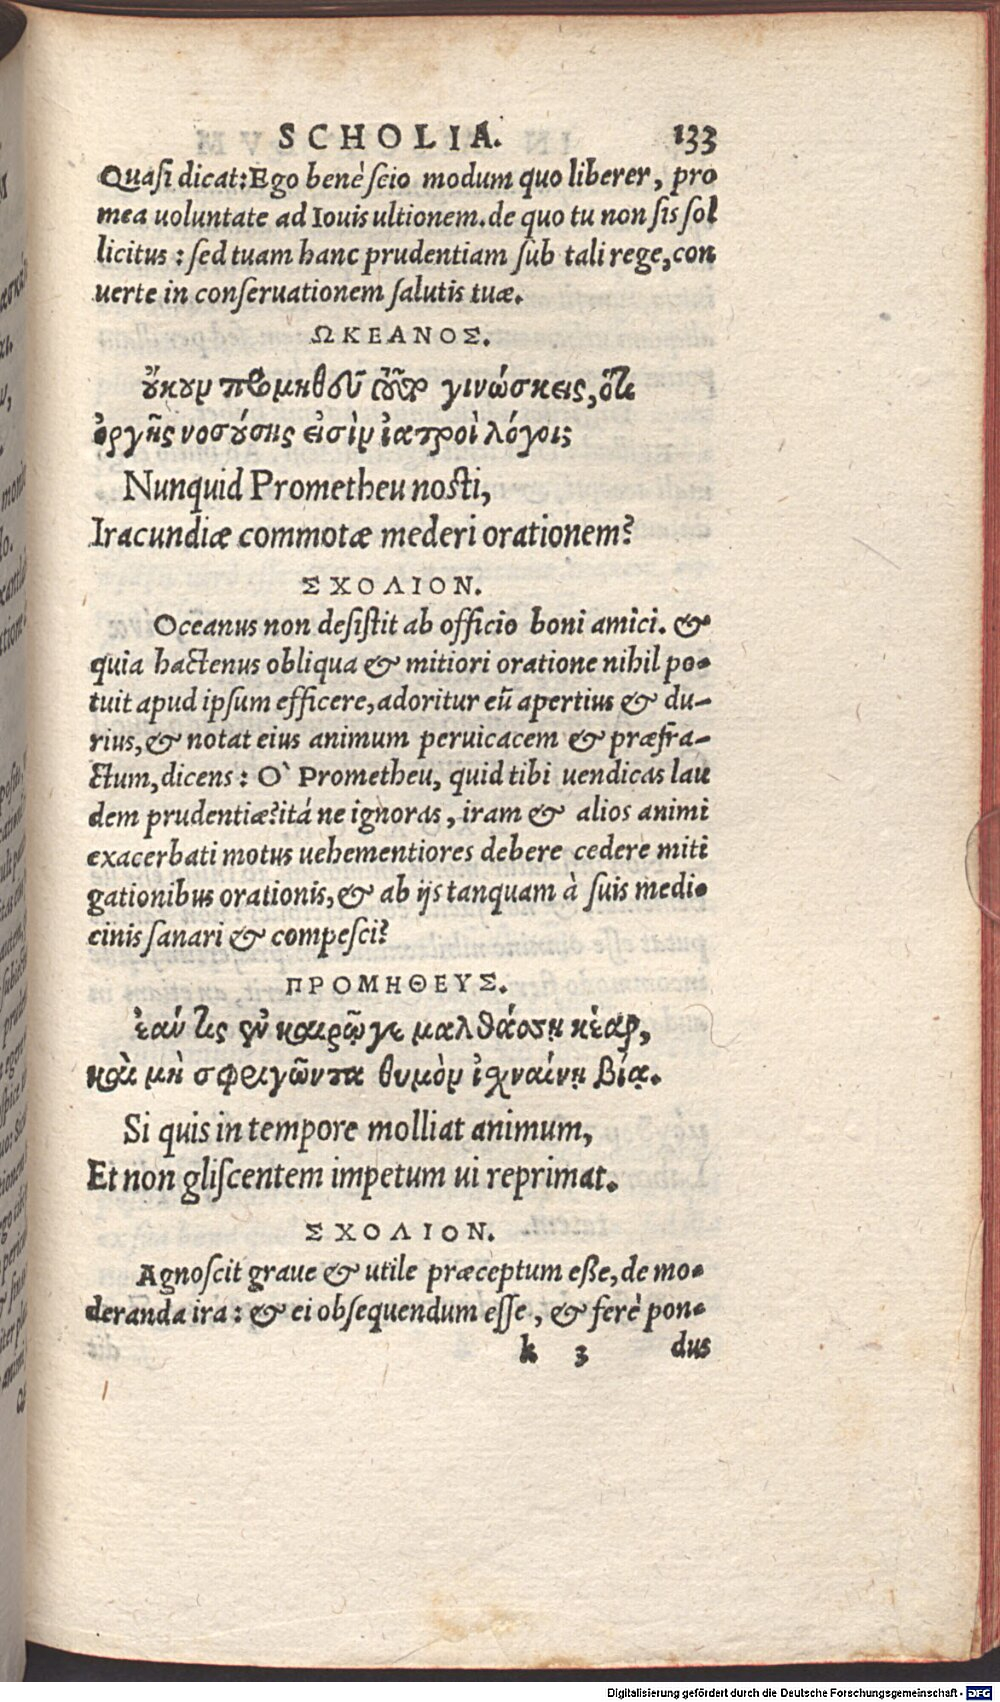 SCHOLIA. 133
Quaſi dicat: Ego benè ſcio modum quo liberer, pro
mea uoluntate ad Iouis ultionem. de quo tu non ſis ſol
licitus: ſed tuam hanc prudentiam ſub tali rege, con
uerte in conſeruationem ſalutis tuæ.
ΩΚΕΑΝΟΣ.
οὔκουν προμηθεῦ τοῦτο γινώσκεις, ὅτι
ὀργῆς νοσούσης εἰσὶν ἰατροὶ λόγοι;
Nunquid Prometheu nosti,
Iracundiæ commotæ mederi orationem?
ΣΧΟΛΙΟΝ.
Oceanus non deſiſtit ab officio boni amici. &
quia hactenus obliqua & mitiori oratione nihil po-
tuit apud ipſum efficere, adoritur eũ apertius & du-
rius, & notat eius animum peruicacem & præfra-
ctum, dicens: O` Prometheu, quid tibi uendicas lau
dem prudentiæ? itá ne ignoras, iram & alios animi
exacerbati motus uehementiores debere cedere miti
gationibus orationis, & ab ijs tanquam à ſuis medi-
cinis ſanari & compeſci?
ΠΡΟΜΗΘΕΥΣ.
ἐάν τις ἐν καιρῷ γε μαλθάσσῃ κέαρ,
καὶ μὴ σφριγῶντα θυμὸν ἰχναίνῃ βίᾳ.
Si quis in tempore molliat animum,
Et non gliſcentem impetum ui reprimat.
ΣΧΟΛΙΟΝ.
Agnoſcit graue & utile præceptum eſſe, de mo-
deranda ira: & ei obſequendum eſſe, & ferè pon-
k 3 dus
Digitalisierung gefördert durch die Deutsche Forschungsgemeinschaft - DFG